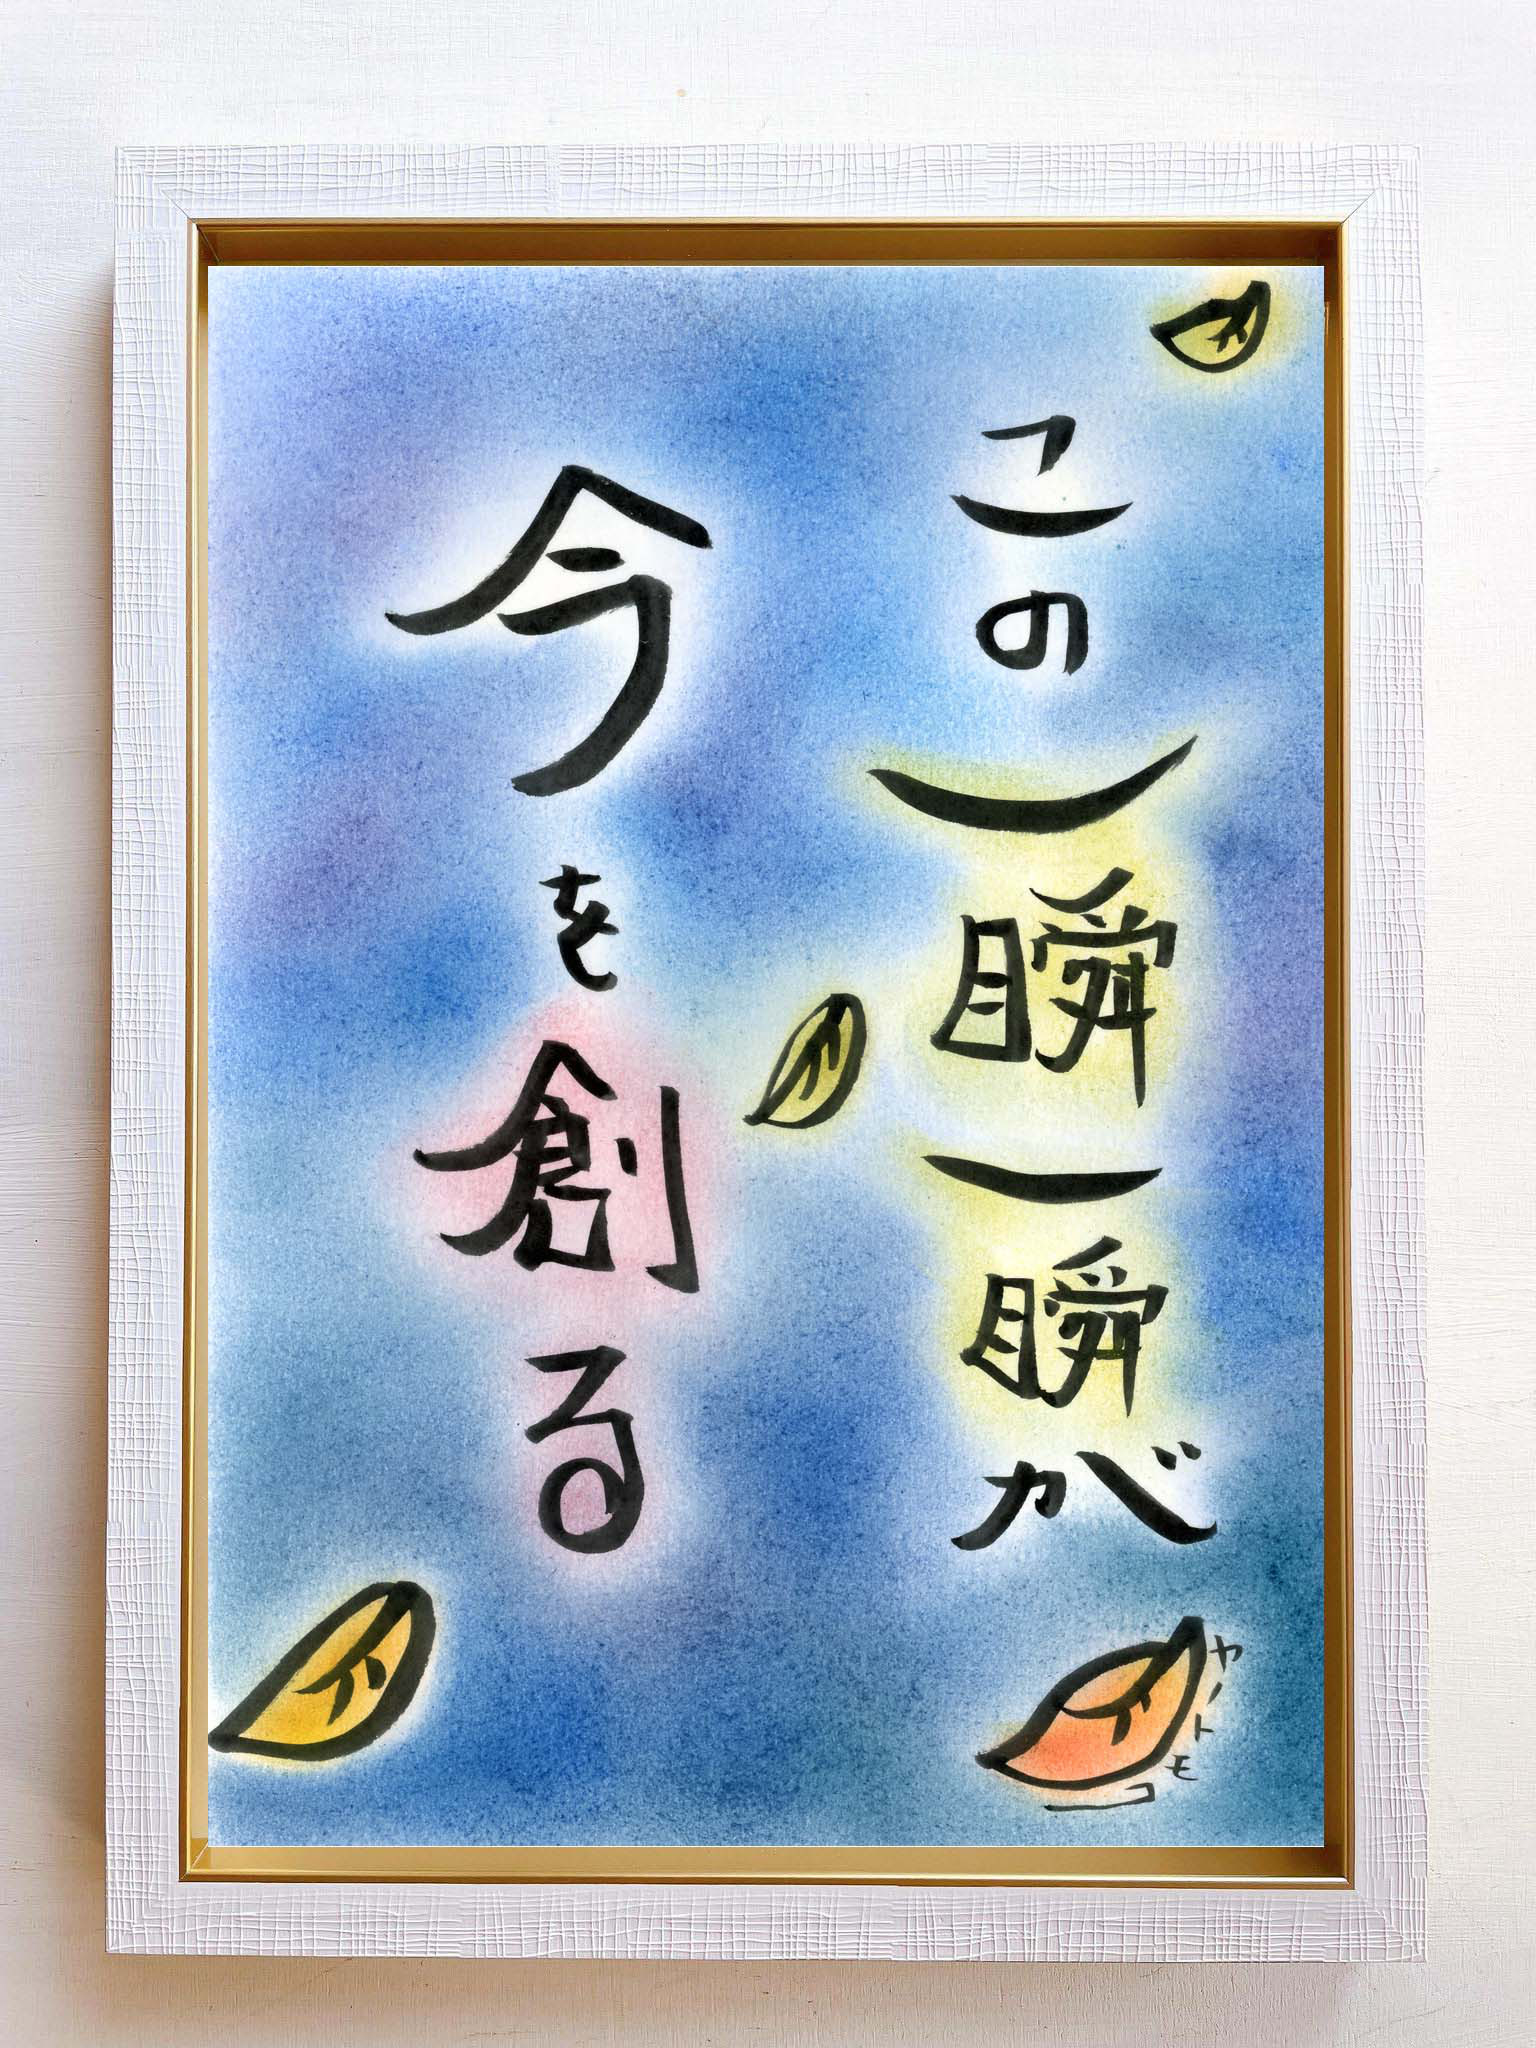 この一瞬一瞬が
今を創る
ヤノトモコ